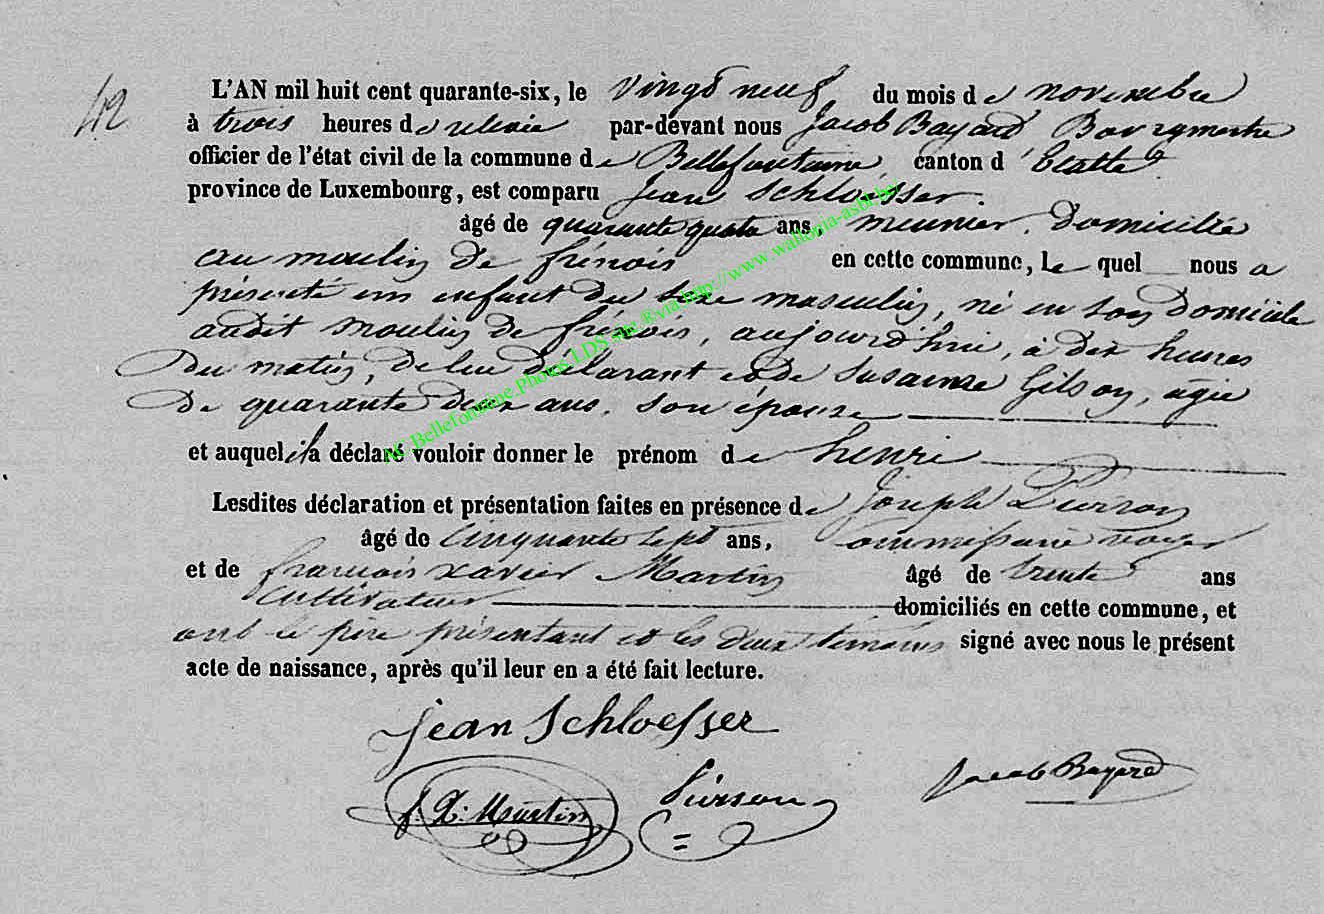 42
L'AN mil huit cent quarante-six, le vingt neuf du mois de novembre
à trois heures de relevée par-devant nous Jacob Bayard Bourgmestre
officier de l'état civil de la commune de Bellefontaine, canton d'Etalle
province de Luxembourg, est comparu Jean Schloesser.
âgé de quarante quatre ans, meunier, domicilié
au moulin de frénois en cette commune, le quel nous a
présenté un enfant du sexe masculin, né en son domicile
audit moulin de frénois, aujourd'hui, à dix heures
du matin, de lui déclarant et de Susanne Gilson, agée
de quarante deux ans, son épouse
et auquel il a déclaré vouloir donner le prénom de henri
Lesdites déclaration et présentation faites en présence de Joseph Pierson
âgé de cinquante sept ans, Commissaire voyer
et de françois xavier Martin âgé de trente ans
cultivateur domiciliés en cette commune, et
ont le père présentant et les deux témoins signé avec nous le présent
acte de naissance, après qu'il leur en a été fait lecture.
Jean Schloesser
f. X: Martin Pierson Jacob Bayard
AC Bellefontaine.Photos LDS site ®via http://www.wallonia-asbl.be/